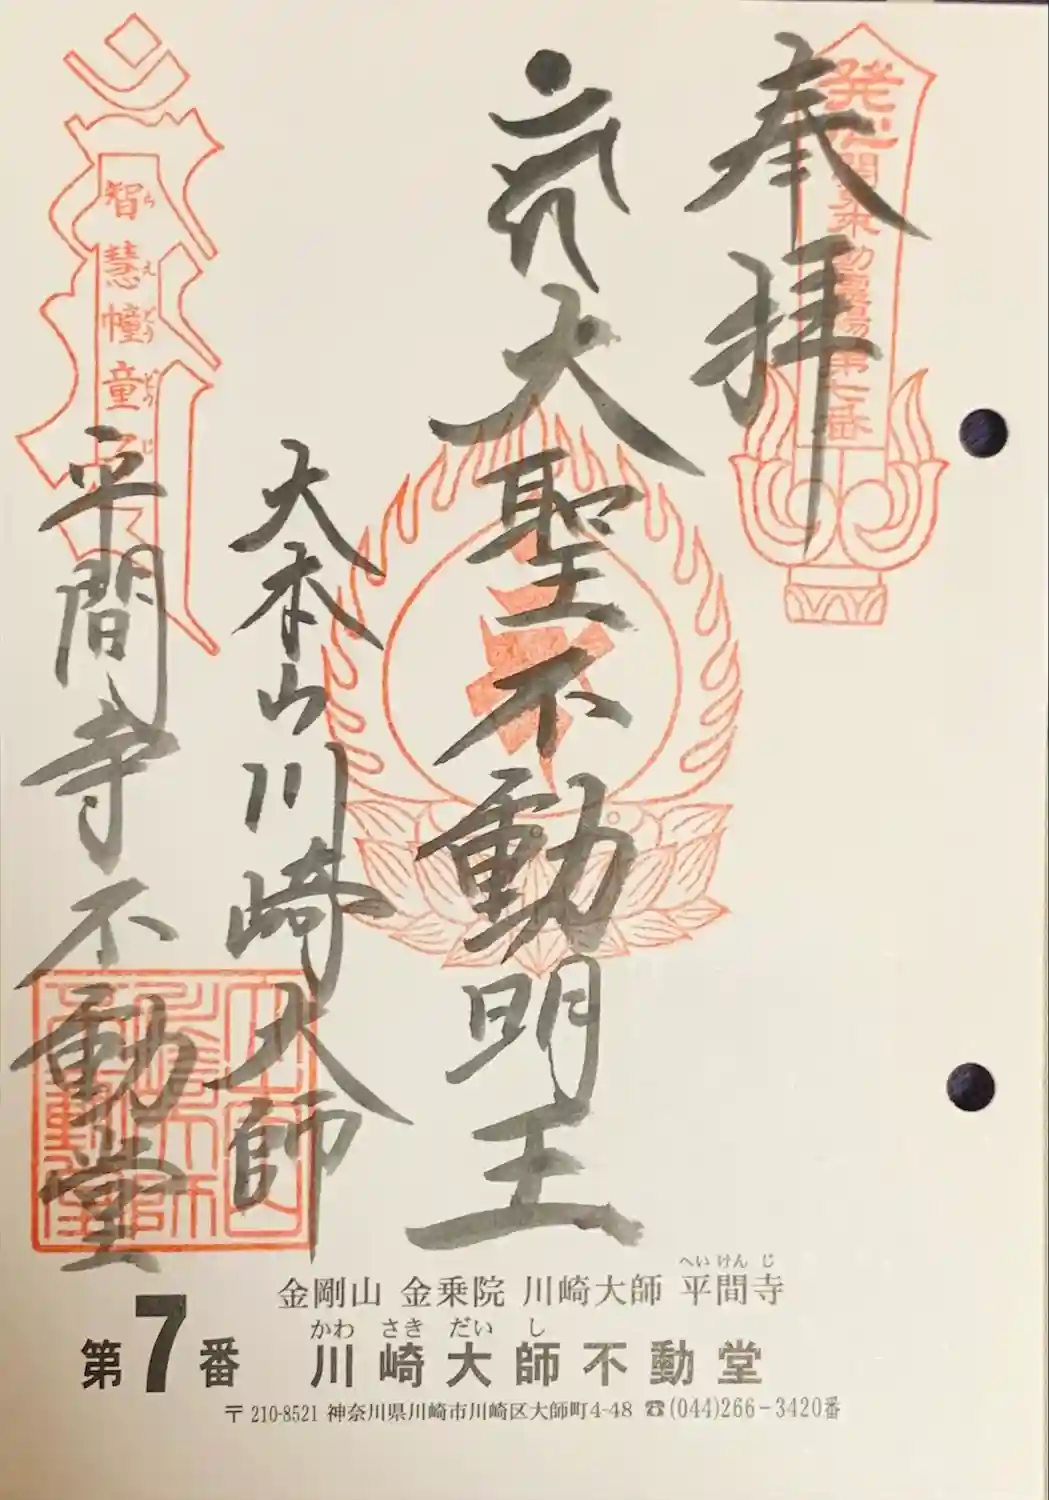 奉拝
発心
関東不動霊場第七番
大聖不動明王
大本山川崎大師
平間寺不動堂
智慧幢童
ちえどうどうじ
へいけんじ
金剛山 金乗院 川崎大師 平間寺
かわさきだいし
第7番 川崎大師不動堂
〒210-8521 神奈川県川崎市川崎区大師町4-48 ☎(044)266-3420番